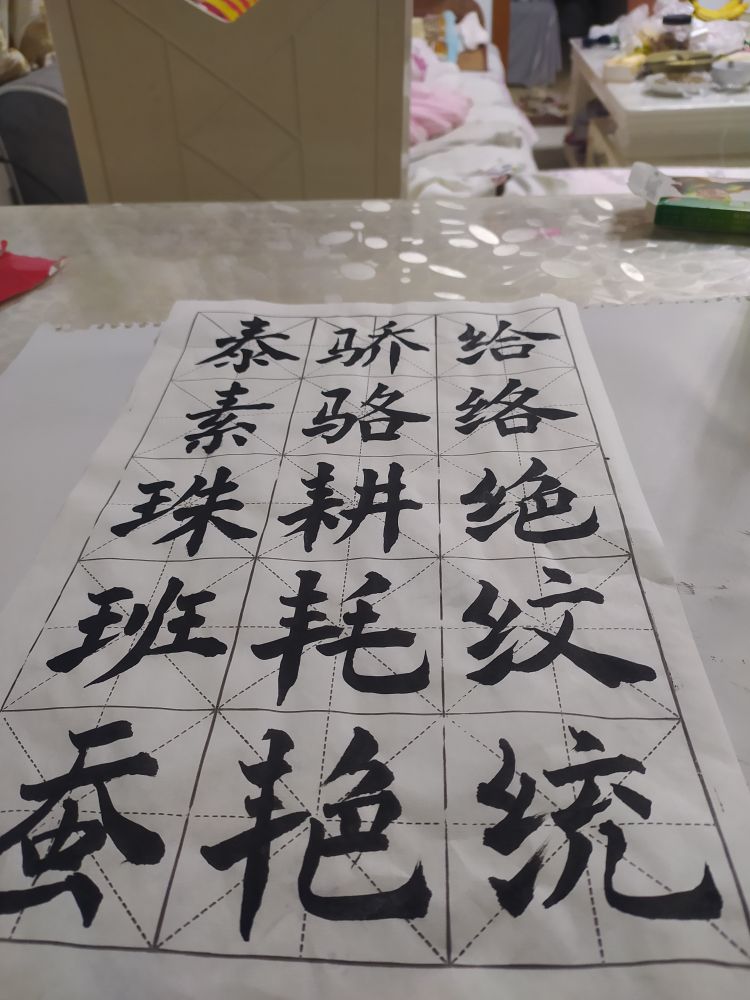 给络绝纹统
骄骆耕耗艳
泰素珠班蚕